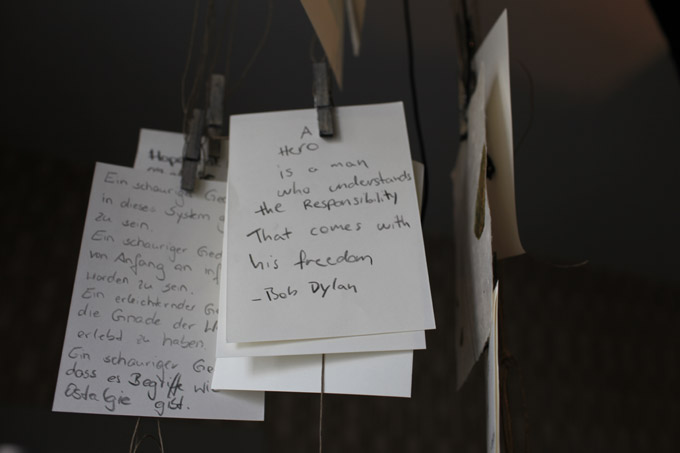 A
Hero
is a man
who understands
the Responsibility
That comes with
his freedom
- Bob Dylan
Hope
Ein schauriger Ged
in dieses System g
zu sein.
Ein schauriger Ged
von Anfang an inf
worden zu sein.
Ein erleichternder G
die Gnade der W
erlebt zu haben.
Ein schauriger Ge
dass es Begriffe wi
Ostalgie gibt.